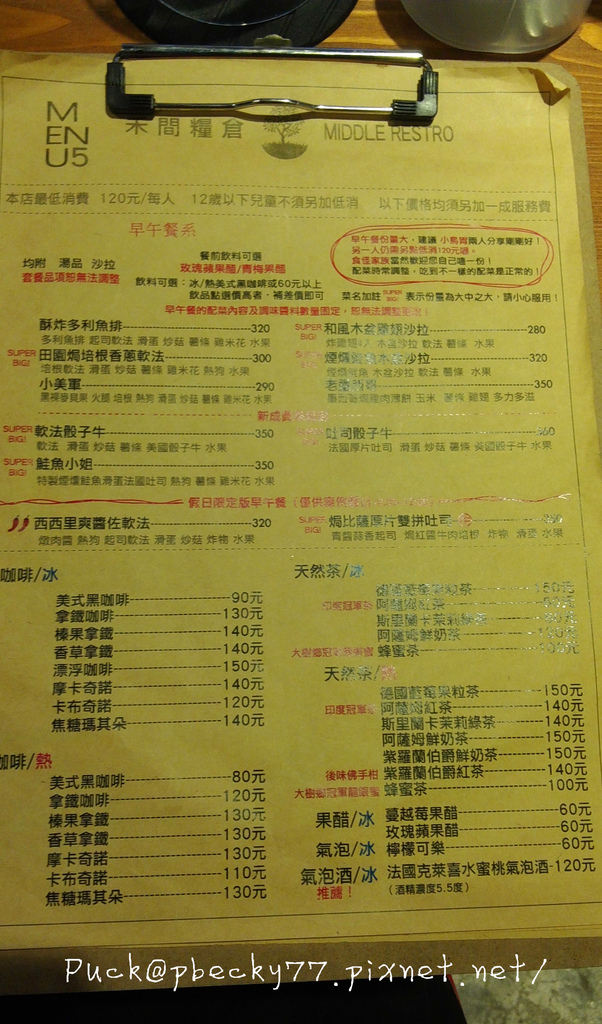 MENU5
米間糧倉
MIDDLE RESTRO
本店最低消費 120元/每人 12歲以下兒童不須另加低消 以下價格均須另加一成服務費
早午餐系
均附 湯品 沙拉
套餐品項恕無法調整
餐前飲料可選
玫瑰蘋果醋/青梅果醋
飲料可選：冰/熱美式黑咖啡或60元以上
飲品點選價高者，補差價即可
早午餐份量大，建議 小鳥胃兩人分享剛剛好！
另一人仍需另點低消120元喔。
食怪家族當然歡迎您自己嗑一份！
配菜時常調整，吃到不一樣的配菜是正常的！
菜名加註 SUPER BIG! 表示份量為大中之大，請小心服用！
早午餐的配菜內容及調味醬料數量固定，恕無法調整
酥炸多利魚排 320
多利魚排 起司軟法 滑蛋 炒菇 薯條 雞米花 水果
SUPER BIG! 田園焗培根香蔥軟法 300
培根軟法 滑蛋 炒菇 薯條 雞米花 熱狗 水果
小美軍 290
黑裸麥貝果 火腿 培根 熱狗 滑蛋 炒菇 薯條 雞米花 水果
SUPER BIG! 和風木盆雞翅沙拉 280
木盆沙拉 軟法 水果
沙拉 320
木盆沙拉 軟法 薯條 水果
350
玉米 薯條 雞翅 多力多滋
SUPER BIG! 軟法骰子牛 350
軟法 滑蛋 炒菇 薯條 美國骰子牛 水果
吐司骰子牛 360
法國厚片吐司 滑蛋 炒菇 薯條 美國骰子牛 水果
SUPER BIG! 鮭魚小姐 350
特製煙燻鮭魚滑蛋法國吐司 熱狗 薯條 雞米花 水果
假日限定版早午餐
西西里爽醬佐軟法 320
燉肉醬 熱狗 起司軟法 滑蛋 炒菇 炸物 水果
SUPER BIG! 焗比薩厚片雙拼吐司
青醬蒜香起司 焗紅醬牛肉培根 炸物 滑蛋 水果
咖啡/冰
美式黑咖啡 90元
拿鐵咖啡 130元
榛果拿鐵 140元
香草拿鐵 140元
漂浮咖啡 150元
摩卡奇諾 140元
卡布奇諾 120元
焦糖瑪其朵 140元
咖啡/熱
美式黑咖啡 80元
拿鐵咖啡 120元
榛果拿鐵 130元
香草拿鐵 130元
摩卡奇諾 130元
卡布奇諾 110元
焦糖瑪其朵 130元
天然茶/冰
果粒茶 150元
印度冠軍茶 阿薩姆紅茶
斯里蘭卡茉莉綠茶
阿薩姆鮮奶茶
蜂蜜茶 100元
天然茶/熱
德國藍莓果粒茶 150元
印度冠軍茶 阿薩姆紅茶 140元
斯里蘭卡茉莉綠茶 140元
阿薩姆鮮奶茶 150元
紫羅蘭伯爵鮮奶茶 150元
後味佛手柑 紫羅蘭伯爵紅茶 140元
大樹鄉冠軍龍眼蜜 蜂蜜茶 100元
果醋/冰 蔓越莓果醋 60元
玫瑰蘋果醋 60元
氣泡/冰 檸檬可樂 60元
氣泡酒/冰 法國克萊喜水蜜桃氣泡酒 120元
推薦！ （酒精濃度5.5度）
Puck@pbecky77.pixnet.net/